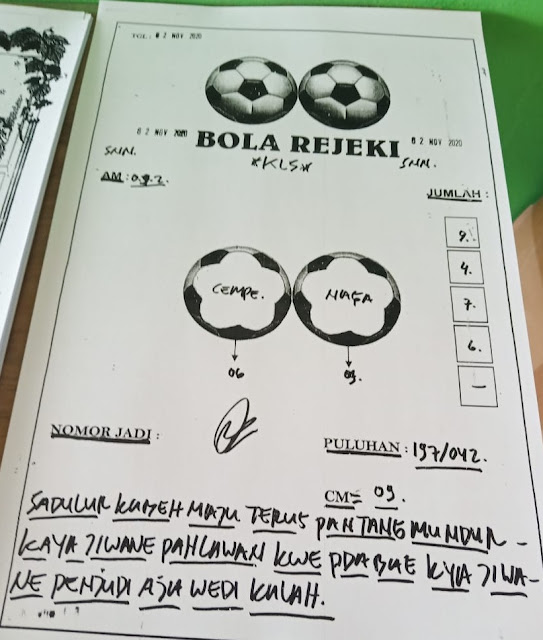 TGL : 0 2 NOV 2020
0 2 NOV 2020
BOLA REJEKI
0 2 NOV 2020
SNN.
*KLS*
SNN.
AM : 0.9.2.
JUMLAH :
9.
4.
7.
6.
-
CEMPE.
NAGA
06
09.
NOMOR JADI :
PULUHAN : 197/042.
CM= 09.
SADULUR KABEH MAJU TERUS PANTANG MUNDUR -
KAYA JIWANE PAHLAWAN KWE PDA BAE KYA JIWA-
NE PENJUDI AJA WEDI KALAH.